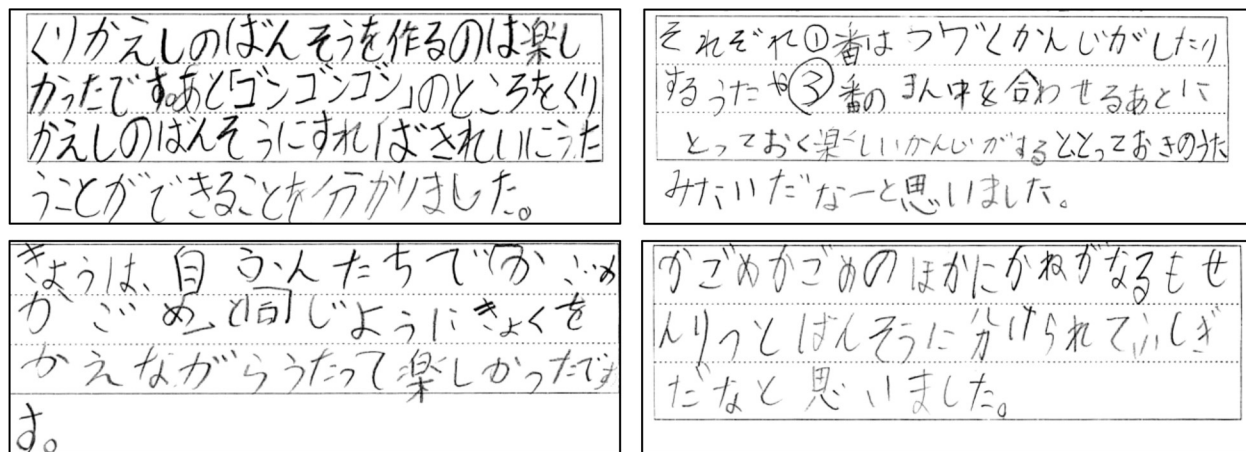 くりかえしのばんそうを作るのは楽し
かったです。あと「ゴンゴンゴン」のところをくり
かえしのばんそうにすればきれいにうた
うことができることを分かりました。
それぞれ①番はつづくかんじがしたり
するうたや③番のまん中を合わせるあとに
とっておく楽しいかんじがするととっておきのうた
みたいだなーと思いました。
きょうは、自ぶんたちで「かごめ
かごめ」と同じようにきょくを
かえながらうたって楽しかったです
す。
かごめかごめのほかにかねがなるもせ
んりつとばんそうに分けられてふしぎ
だなと思いました。